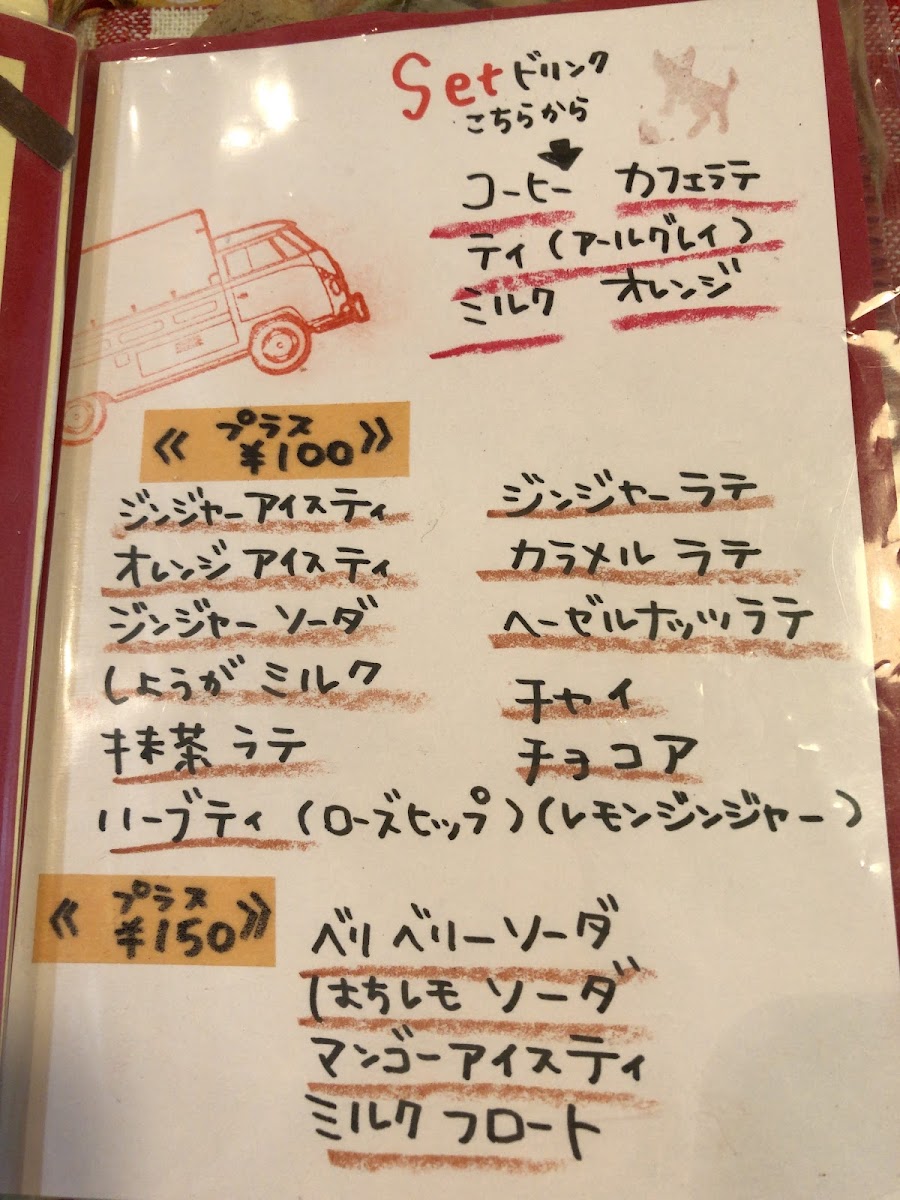 Set ドリンク
こちらから
コーヒー カフェラテ
ティ(アールグレイ)
ミルク オレンジ
《プラス
¥100》
ジンジャーアイスティ
オレンジアイスティ
ジンジャーソーダ
しょうがミルク
抹茶ラテ
ジンジャーラテ
カラメルラテ
ヘーゼルナッツラテ
チャイ
チョコア
ハーブティ(ローズヒップ)(レモンジンジャー)
《プラス
¥150》
ベリベリーソーダ
はちレモソーダ
マンゴーアイスティ
ミルクフロート